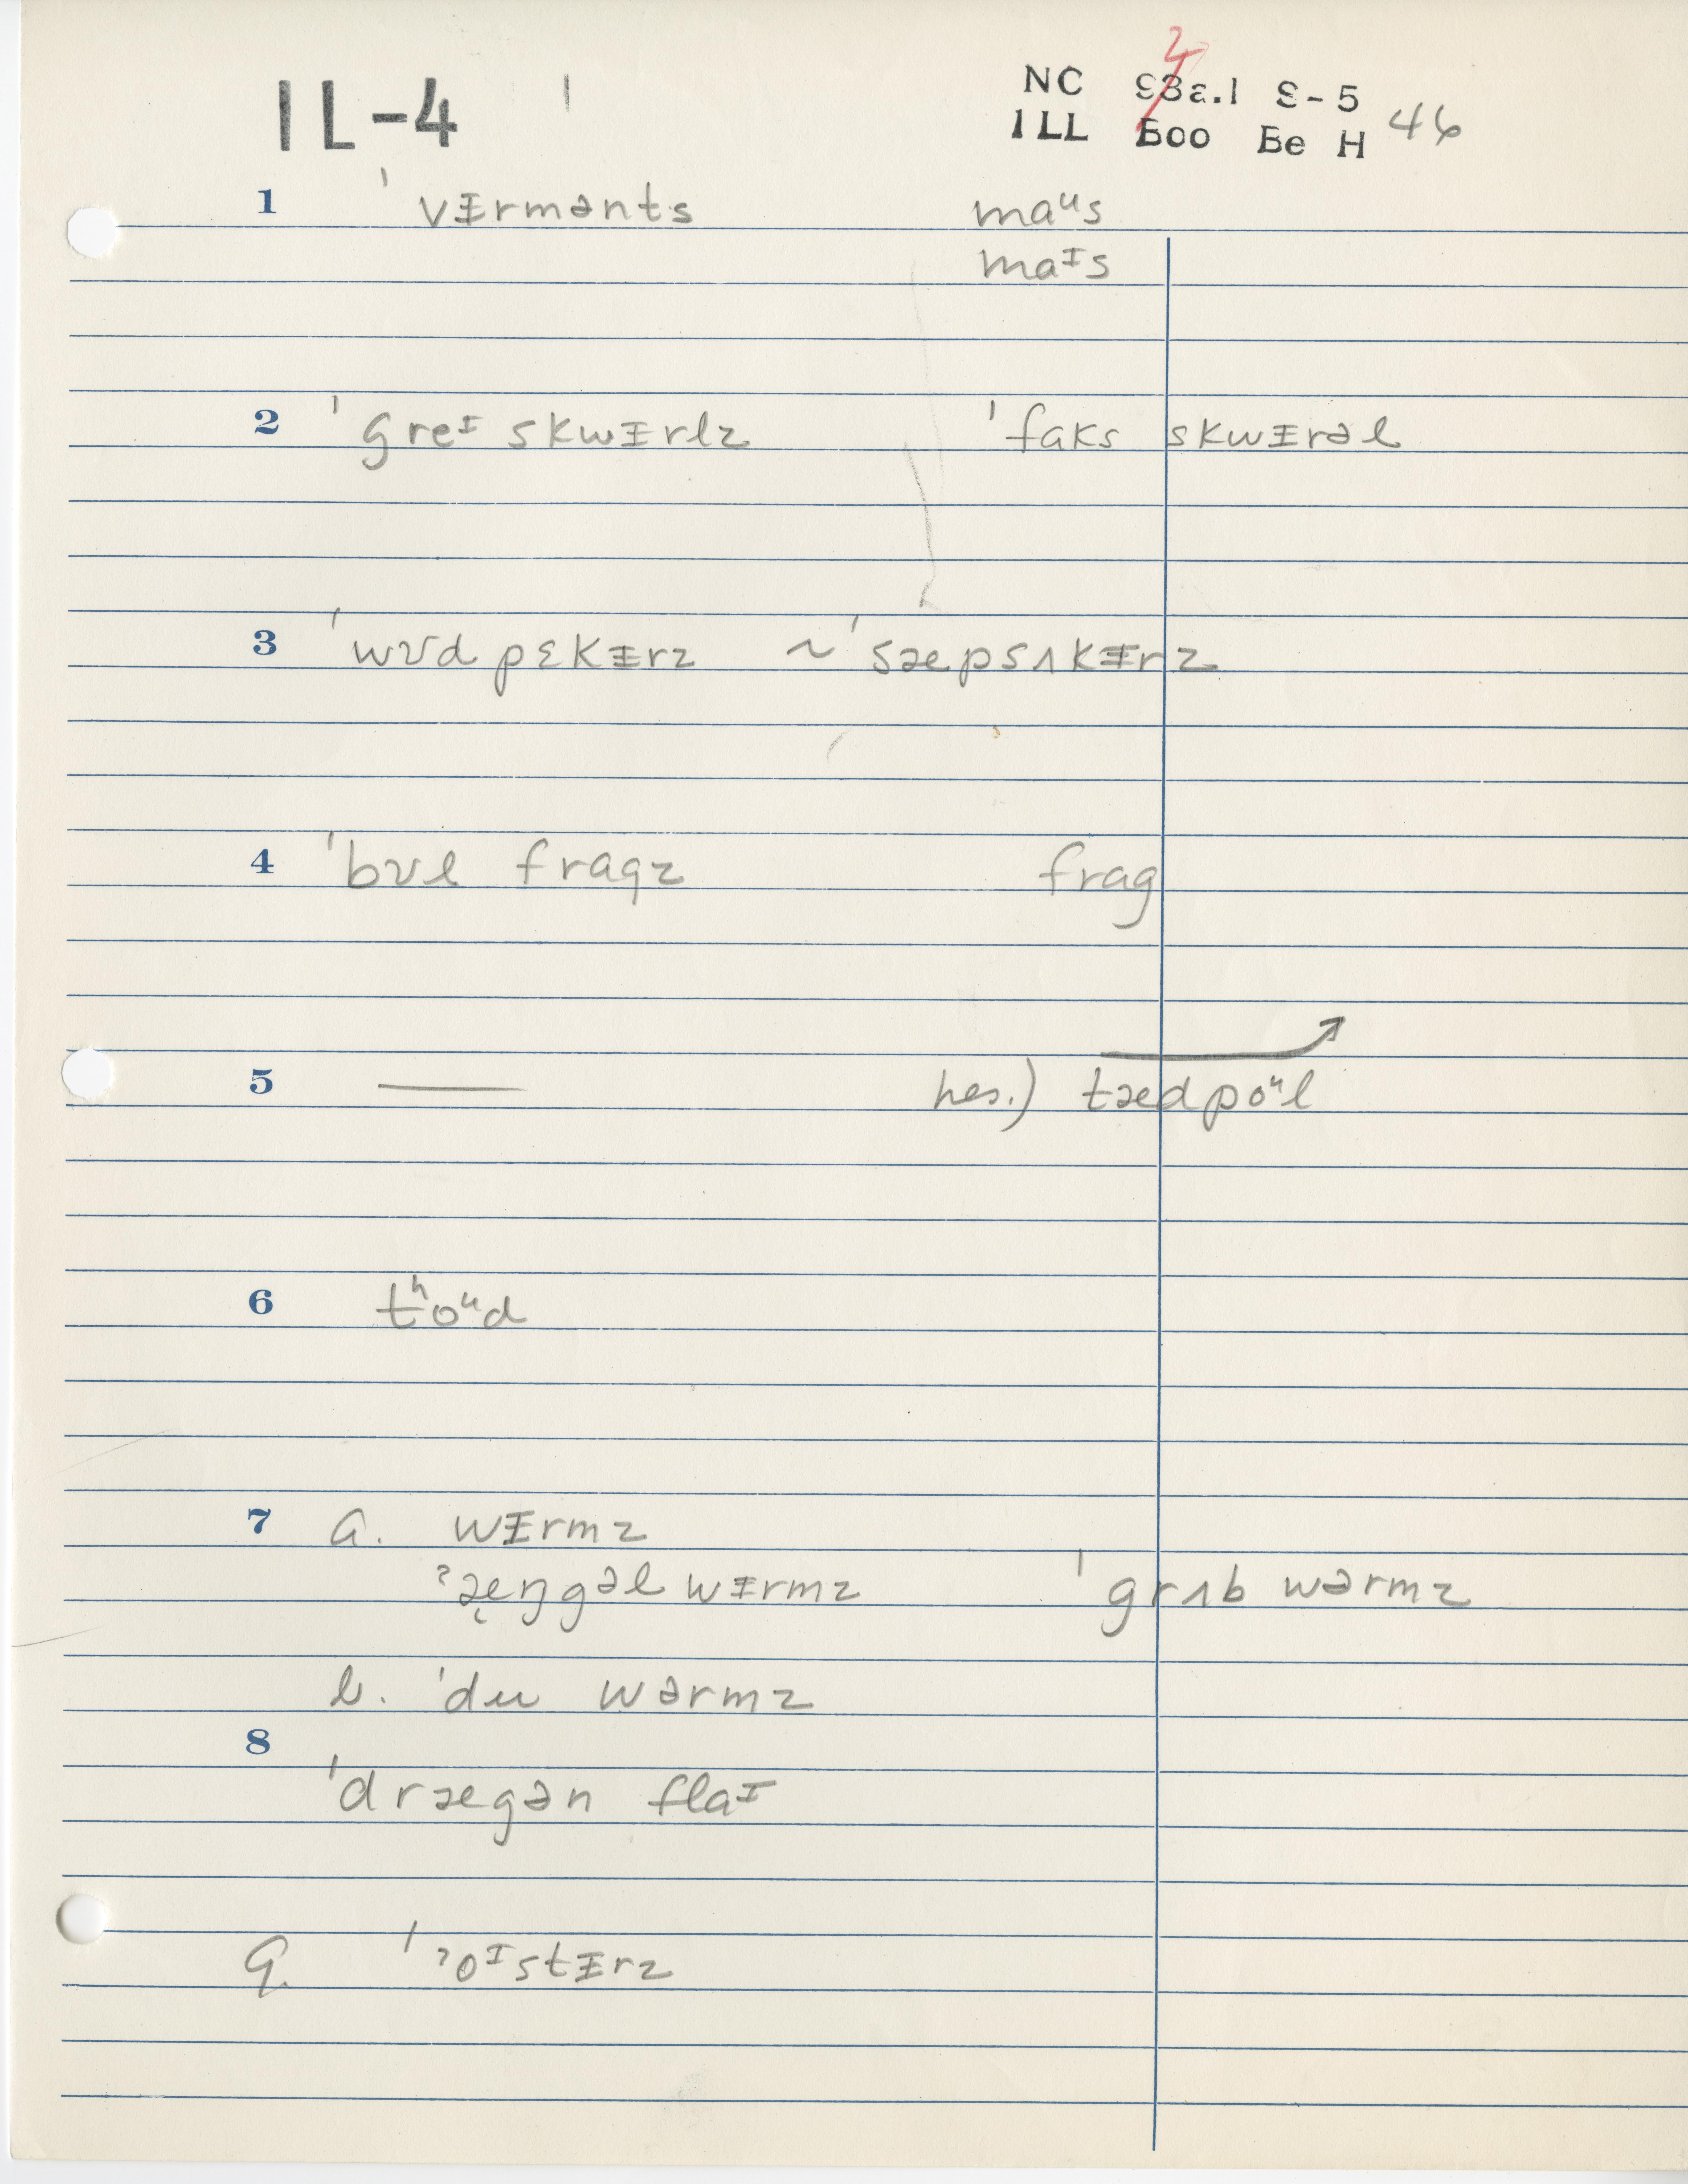 IL-4 NC 93a.1 S-5
4
ILL Boo Be H 46
1 ˈvᵻrmənts maᵘs
maᶦs
2 ˈgreᶦ skwᵻrlz ˈfaks skwᵻrəl
3 ˈwʊd pɛkᵻrz ~ ˈsæpsʌkᵻrz
4 ˈbʊl fragz frag
5 — hes.) tædpoᵘl
6 tʰoᵘd
7 a. wᵻrmz
ˀæŋgəl wᵻrmz ˈgrʌb wərmz
b. ˈdu wərmz
8
ˈdrægən flaᶦ
9. ˈˀoᶦstᵻrz